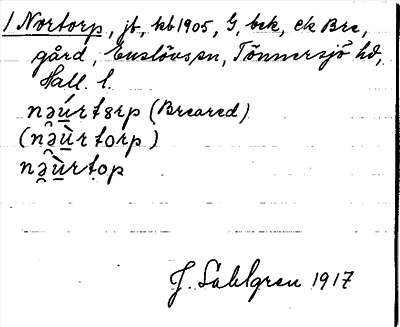 1 Nortorp, jb, kb 1905, G, bck, ek Bre,
gård, Enslövs sn, Tönnersjö hd,
Hall. l.
nə̯ú̲rtɜrp (Breared)
(nə̯ù̲rtorp)
nə̯ù̲rtop
J. Sahlgren 1917